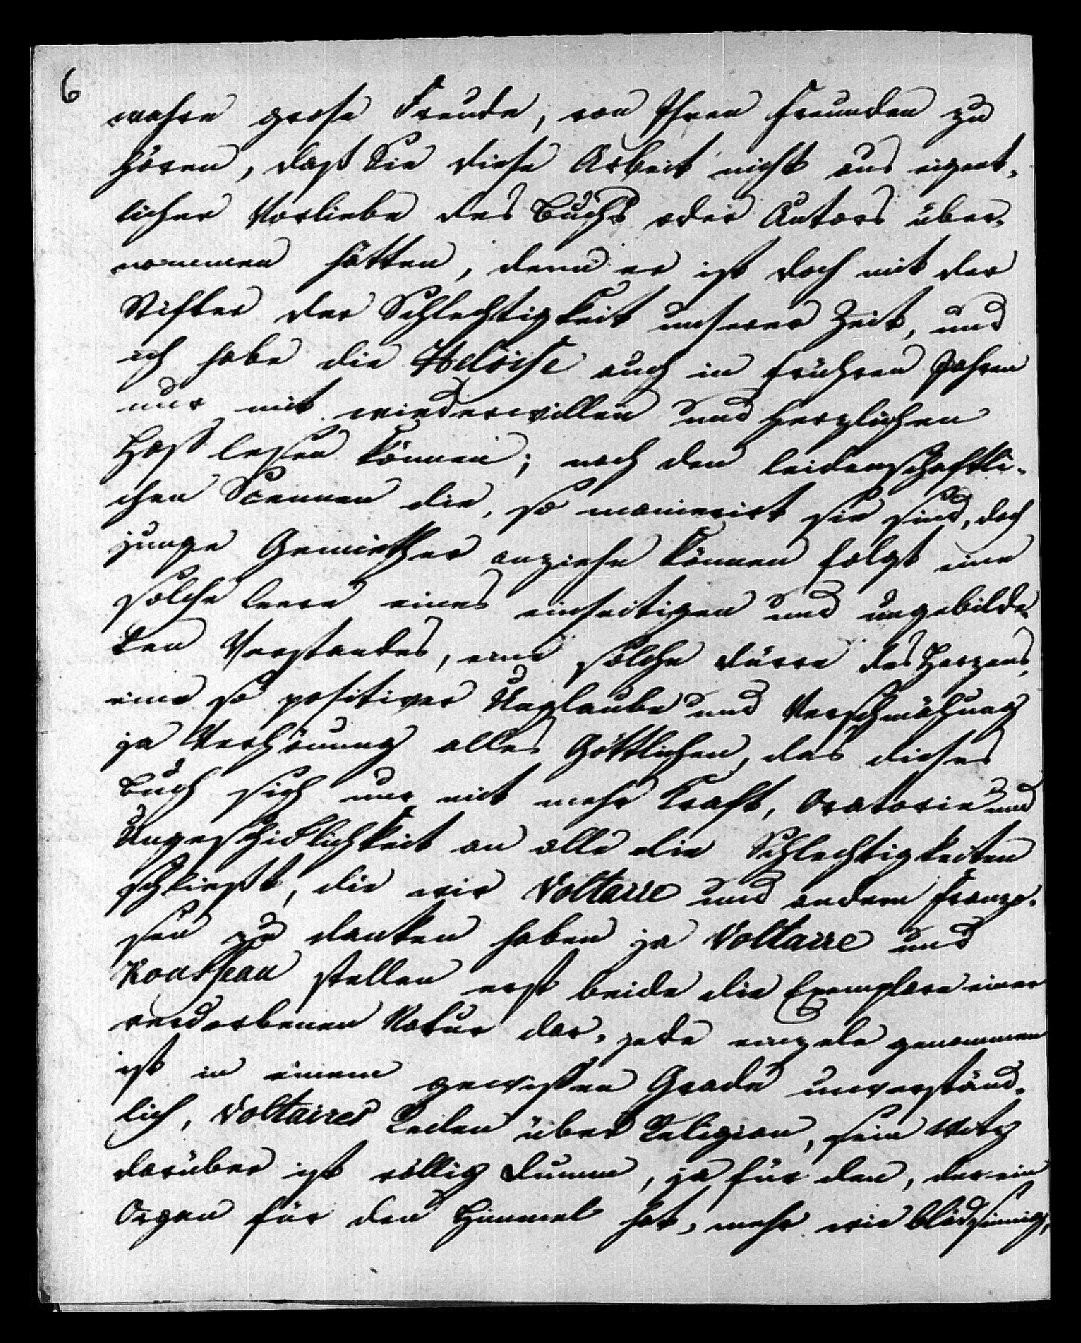 6
wahre große Freude, von Ihren Freunden zu
hören, daß Sie diese Arbeit nicht aus eigent-
licher Vorliebe des Buchs oder Autors über-
nommen hätten, denn er ist doch mit der
Stifter der Schlechtigkeit unserer Zeit, und
ich habe die Heloise auch in frühren Jahren
nur mit wiederwillen und herzlichen
Haß lesen können; nach den leidenschaftli-
chen Scennen die, so manierirt sie sind, doch
junge Gemüther anziehe können folgt eine
solche leere eines einseitigen und ungebilde-
ten Verstandes, eine solche dürre des Herzens,
eine so positiver Unglaube und Verschmähung
ja Verhönung alles Göttlichen, das dieses
Buch sich nur mit mehr Kraft, Oratorie und
Ungeschicklichkeit an alle die Schlechtigkeiten
schließt, die wir Voltaire und andern Franzo-
sen zu danken haben ja Voltaire und
Rousseau stellen erst beide die Exemplare einer
verdorbenen Natur dar, jede einzele genommen
ist in einem gewissen Grade unverständ-
lich, Voltaires Reden über Religion, sein Witz
darüber ist völlig dumm, ja für den, der ein
Organ für den Himmel hat, mehr wie blödsinnig,